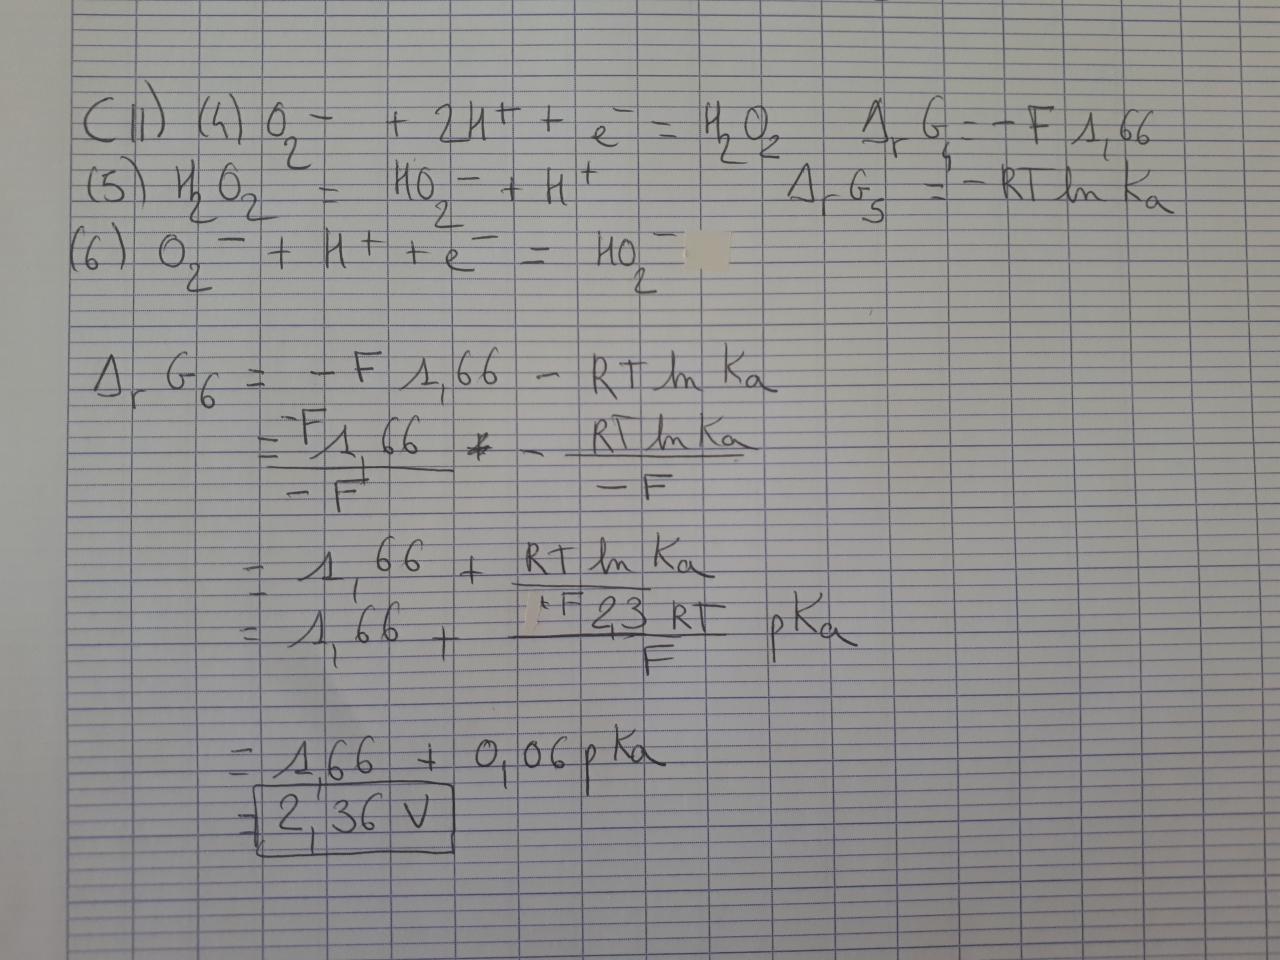 C11) (4) O₂⁻ + 2H⁺ + e⁻ = H₂O₂ ΔᵣG₄ = -F 1,66
(5) H₂O₂ = HO₂⁻ + H⁺ ΔᵣG₅ = -RT ln Ka
(6) O₂⁻ + H⁺ + e⁻ = HO₂⁻
ΔᵣG₆ = -F 1,66 - RT ln Ka
= -F 1,66 / -F - RT ln Ka / -F
= 1,66 + RT ln Ka / +F
= 1,66 + 2,3 RT / F pKa
= 1,66 + 0,06 pKa
= 2,36 V